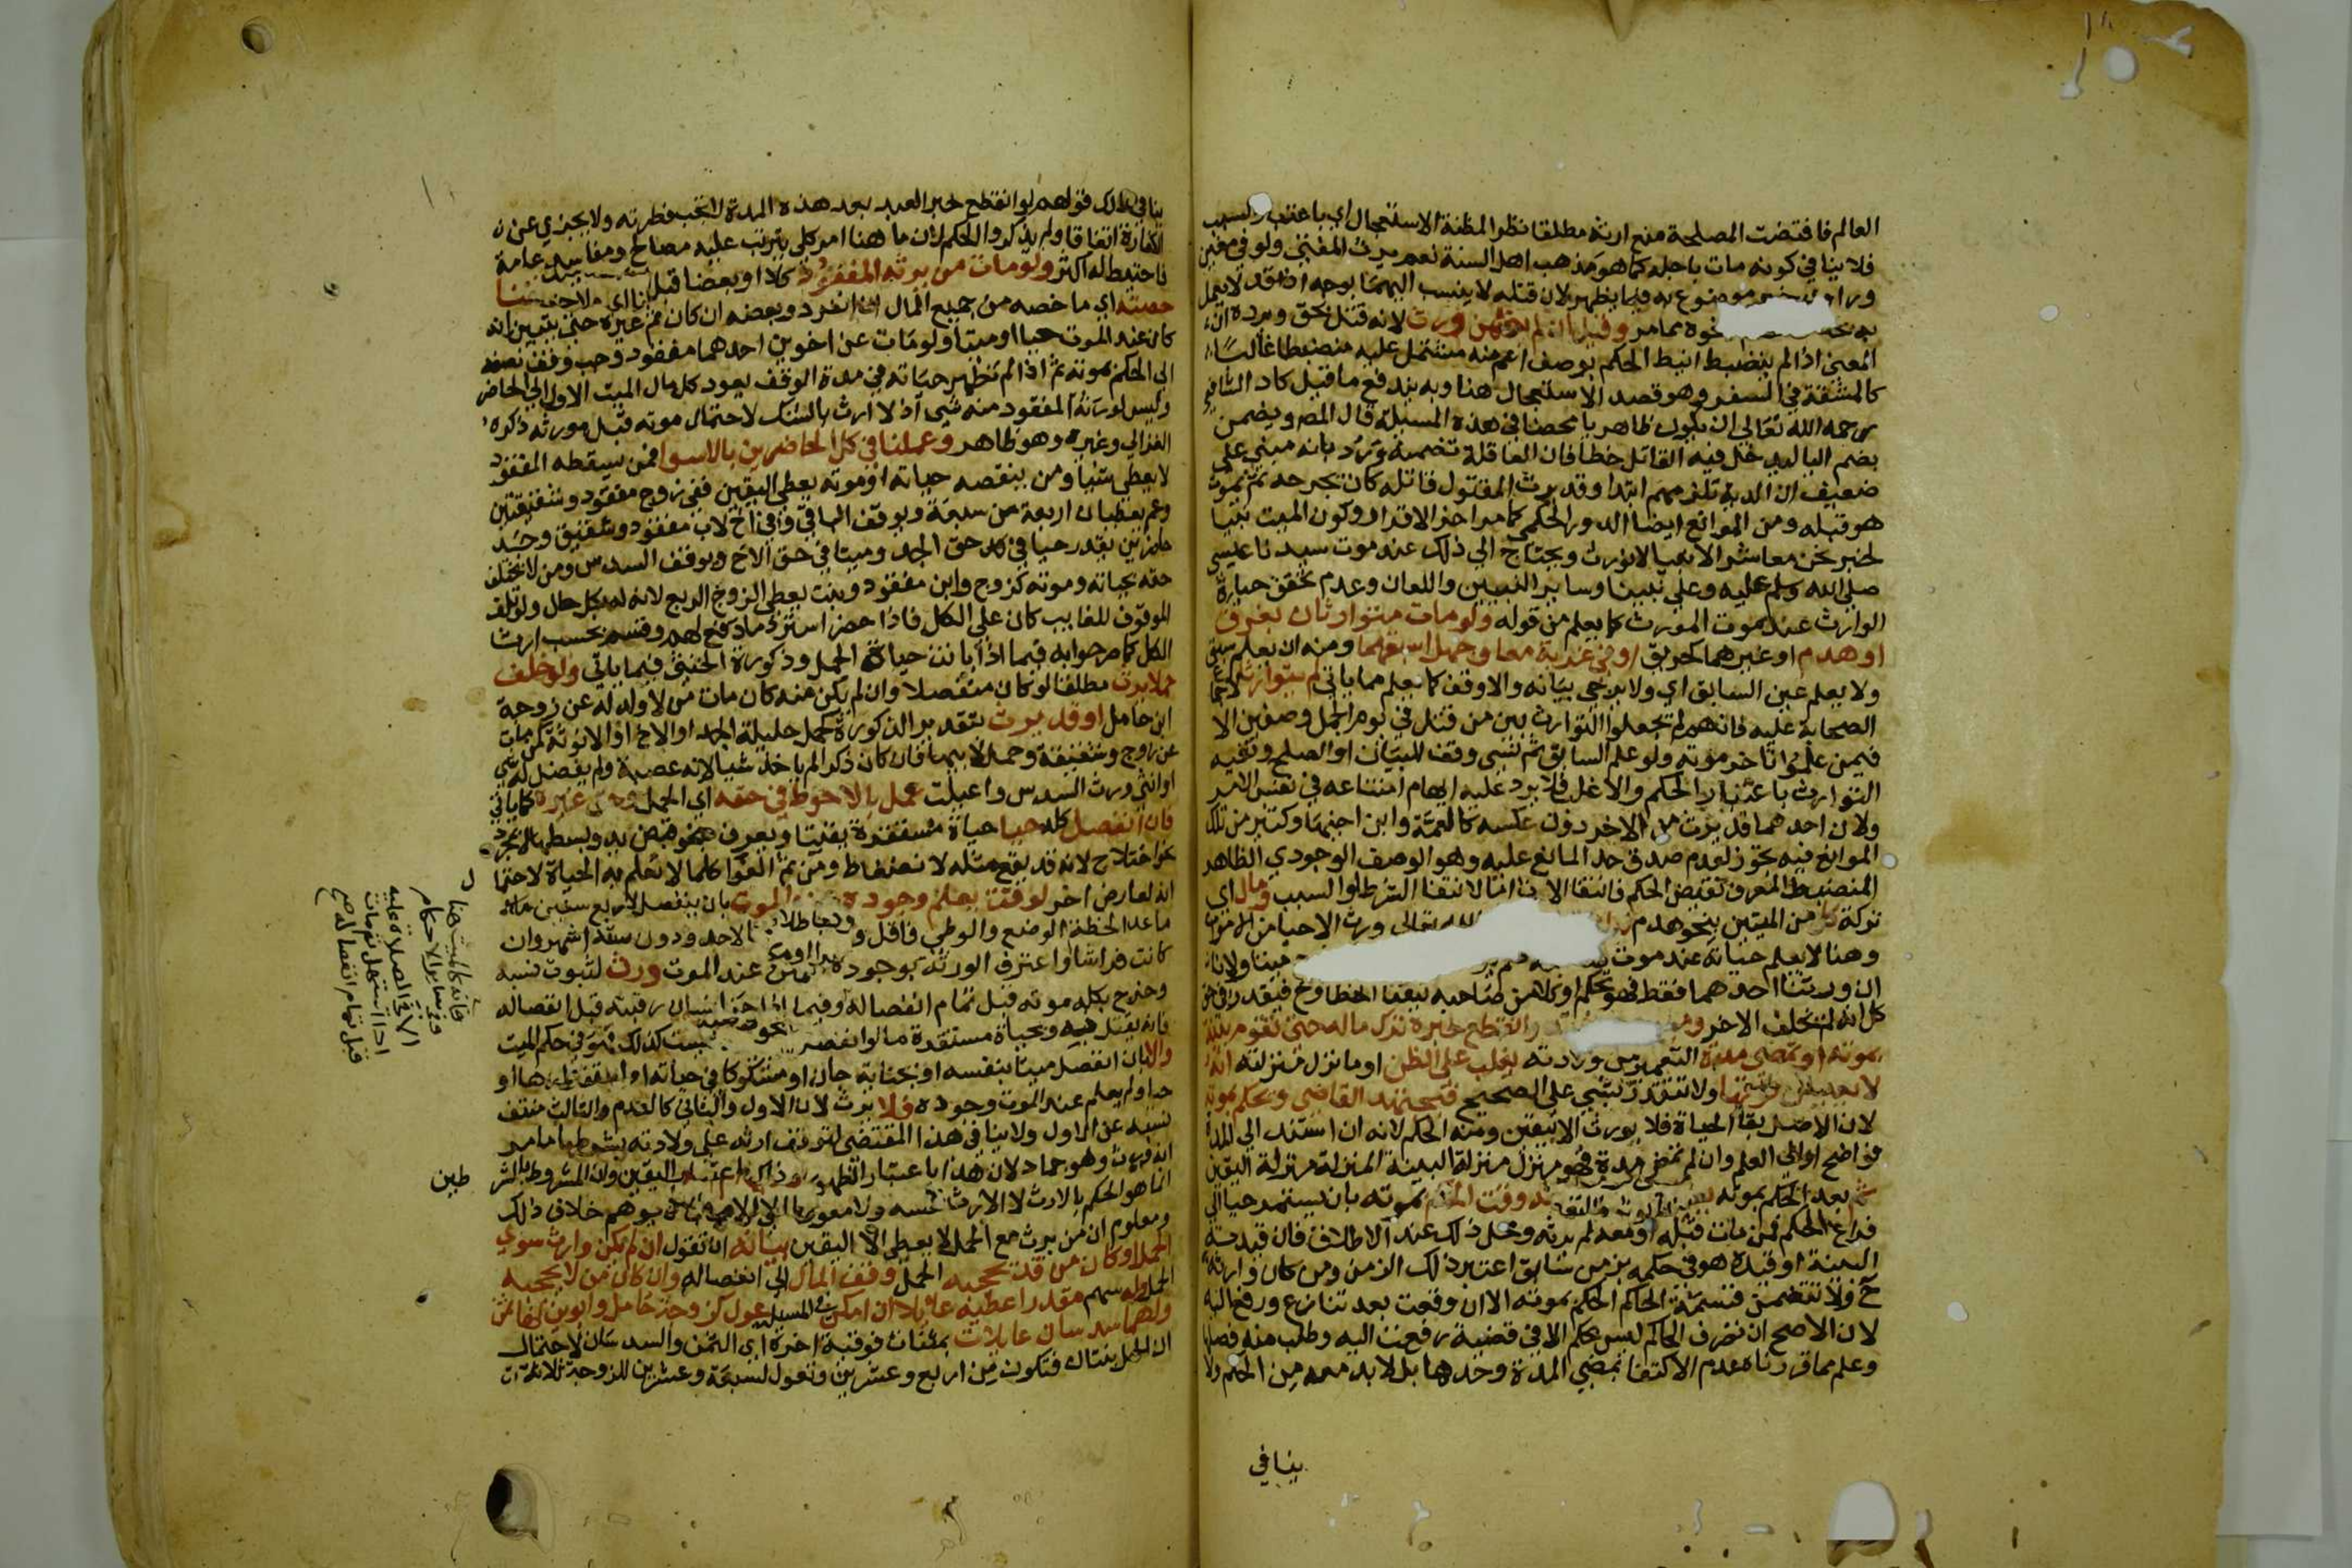 العالم فاقتضت المصلحة منع ارثه مطلقا نظرا لمظنة الاستعجال اي باعتبار السبب
فلا ينافي كونه مات باجله كما هو مذهب اهل السنة نعم يرث المفتي ولو في معين
وراوي موضوع به فيما يظهر لان قتله لا ينسب اليهما بوجه اذ قد لا يعمل
به نحوه مما مر وقيل ان لم يضمن ورث لانه قتل بحق ويرده ان
المعنى اذا لم ينضبط انيط الحكم بوصف اعم منه مشتمل عليه منضبط غالبا
كالمشقة في السفر وهو قصد الاستعجال هنا وبه يندفع ما قيل كاد الشافعي
رحمه الله تعالى ان يكون ظاهريا محضا في هذه المسيلة قال المص ويضمن
بضم اليا ليدخل فيه القاتل خطا فان العاقلة تضمنه ويرد بانه مبني على
ضعيف ان الدية تلزمهم ابتدا وقد يرث المقتول قاتله كان يجرحه ثم يموت
هو قبله ومن الموانع ايضا الدور الحكمي كما مر اخر الاقرار وكون الميت نبيا
لخبر نحن معاشر الانبيا لا نورث ويحتاج الي ذلك عند موت سيدنا عيسي
صلى الله وسلم عليه وعلى نبينا وساير النبيين واللعان وعدم تحقق حياة
الوارث عند موت المورث كما يعلم من قوله ولو مات متوارثان بغرق
او هدم او غيرهما كحريق او في غربة معا وجهل اسبقهما ومنه ان يعلم سبق
ولا يعلم عين السابق اي ولا يرجى بيانه والا وقف كما يعلم مما ياتي لم يتوارثا لاجماع
الصحابة عليه فانهم لم يجعلوا التوارث بين من قتل في يوم الجمل وصفين الا
فيمن علموا تاخر موته ولو علم السابق ثم نسي وقف للبيان او الصلح ونفيه
التوارث باعتبار الحكم والاغلب فلا يرد عليه ايهام امتناعه في نفس الامر
ولان احدهما قد يرث من الاخر دون عكسه كالعمة وابن اخيها وكثير من تلك
الموانع فيه تجوز لعدم صدق حد المانع عليه وهو الوصف الوجودي الظاهر
المنضبط المعرف نقيض الحكم فانتفا الارث اما لانتفا الشرط او السبب ومال اي
تركة كل من الميتين بنحو هدم الله تعالى ورث الاحيا من الاموات
وهنا لا يعلم حياته عند موت ميتا ولانا
ان ورثنا احدهما فقط فهو تحكم او كلا من صاحبه تيقنا الخطا وح فيقدر في حق
كل انه لم يخلف الاخر وانقطع خبره ترك ماله حتى تقوم بينة
بموته او تمضى مدة التعمير من ولادته يغلب على الظن او ما نزل منزلته انه
لا يعيش فوقها ولا تتقدر بشي على الصحيح فيجتهد القاضي ويحكم بموته
لان الاصل بقا الحياة فلا يورث الا بيقين ومنه الحكم لانه ان استند الى المدة
فواضح اوالى العلم وان لم تمض مدة فهو منزل منزلة البينة المنزلة منزلة اليقين
ثم بعد الحكم بموته وقت الحكم بموته بان يستمر حيا الى
فراغ الحكم فمن مات قبله او معه لم يرثه ومحل ذلك عند الاطلاق فان قيدته
البينة او قيده هو في حكمه بزمن سابق اعتبر ذلك الزمن ومن كان وارثه
ح ولا تتضمن قسمة الحاكم الحكم بموته الا ان وقعت بعد تنازع ورفع اليه
لان الاصح ان تصرف الحاكم ليس بحكم الا في قضية رفعت اليه وطلب منه فصلها
وعلم مما قررناه عدم الاكتفا بمضي المدة وحدها بل لا بد معه من الحكم ولا
ينافي
ينافي ذلك قولهم لو انقطع خبر العبد بعد هذه المدة لم تجب فطرته ولا يجزي عن
الكفارة اتفاقا ولم يذكروا الحكم لان ما هنا امر كلي يترتب عليه مصالح ومفاسد عامة
فاحتيط له اكثر ولو مات من يرثه المفقود كلا او بعضا قبل
حصته اي ما خصه من جميع المال ان انفرد وبعضه ان كان ثم غيره حتى يتبين انه
كان عند الموت حيا او ميتا ولو مات عن اخوين احدهما مفقود وجب وقف نصفه
الى الحكم بموته ثم اذا لم تظهر حياته في مدة الوقف يعود كل مال الميت الاول الى الحاضر
وليس لورثة المفقود منه شي اذ لا ارث بالشك لاحتمال موته قبل مورثه ذكره
الغزالي وغيره وهو ظاهر وعملنا في كل الحاضرين بالاسوا فمن يسقطه المفقود
لا يعطى شيا ومن ينقصه حياته او موته يعطى اليقين ففي زوج مفقود وشقيقتين
وعم يعطيان اربعة من سبعة ويوقف الباقي وفي اخ لاب مفقود وشقيق وجد
حاضرين يقدر حيا في حق الجد وميتا في حق الاخ ويوقف السدس ومن لا يختلف
حقه بحياته وموته كزوج وابن مفقود وبنت يعطى الزوج الربع لانه له بكل حال ولو تلف
الموقوف للغايب كان على الكل فاذا حضر استرد ما دفع لهم وقسم بحسب ارث
الكل كما صرحوا به فيما اذا بانت حياة الحمل وذكورة الخنثى فيما ياتي ولو خلف
حملا يرث مطلقا لو كان منفصلا وان لم يكن منه كان مات من لا ولد له عن زوجة
ابن حامل او قد يرث بتقدير الذكورة كحمل حليلة الجد او الاخ او الانوثة كمن مات
عن زوج وشقيقة وحمل لابيها فان كان ذكرا لم ياخذ شيا لانه عصبة ولم يفضل له شي
او انثى ورثت السدس واعيلت عمل بالاحوط في حقه اي الحمل وحق غيره كما ياتي
فان انفصل كله حيا حياة مستقرة يقينا ويعرف بنحو قبض يد وبسطها لا بمجرد
نحو اختلاج لانه قد يقع مثله لانضغاط ومن ثم الغوا كلما لا تعلم به الحياة لاحتمال
انه لعارض اخر لوقت يعلم وجوده عند الموت بان ينفصل لاربع سنين
ما عدا لحظة الوضع والوطي فاقل ودون ستة اشهر وان
كانت فراشا او اعترف الورثة بوجوده عند الموت ورث لثبوت نسبه
وخرج بكله موته قبل تمام انفصاله رقبته قبل انفصاله
فانه يقتل به وبحياة مستقرة ما لو انفصل فهو في حكم الميت
والا بان انفصل ميتا بنفسه او بجناية جان او مشكوكا في حياته او استقرارها او
حيا ولم يعلم عند الموت وجوده فلا يرث لان الاول والثاني كالعدم والثالث منتف
نسبه عن الاول ولا ينافي هذا المقتضى لتوقف ارثه على ولادته بشرطها ما مر
انه يرث وهو جماد لان هذا باعتبار الظهور وذاك باعتبار اليقين
انما هو الحكم بالارث لا الارث نفسه يوهم خلاف ذلك
ومعلوم ان من يرث مع الحمل لا يعطى الا اليقين بيانه ان تقول ان لم يكن وارث سوى
الحمل او كان من قد يحجبه الحمل وقف المال الى انفصاله وان كان من لا يحجبه
الحمل وله سهم مقدر اعطيه عايلا ان امكن في المسيلة عول كزوجة حامل وابوين لها ثمن
ولهما سدسان عايلات بمثناة فوقية اخره اي الثمن والسدسان لاحتمال
ان الحمل بنتان فتكون من اربع وعشرين وتعول لسبعة وعشرين للزوجة ثلاثة
فانه كالميت هنا
وفي ساير الاحكام
الا في الصلاة عليه
اذا استهل ثم مات
قبل تمام انفصاله صح
طين